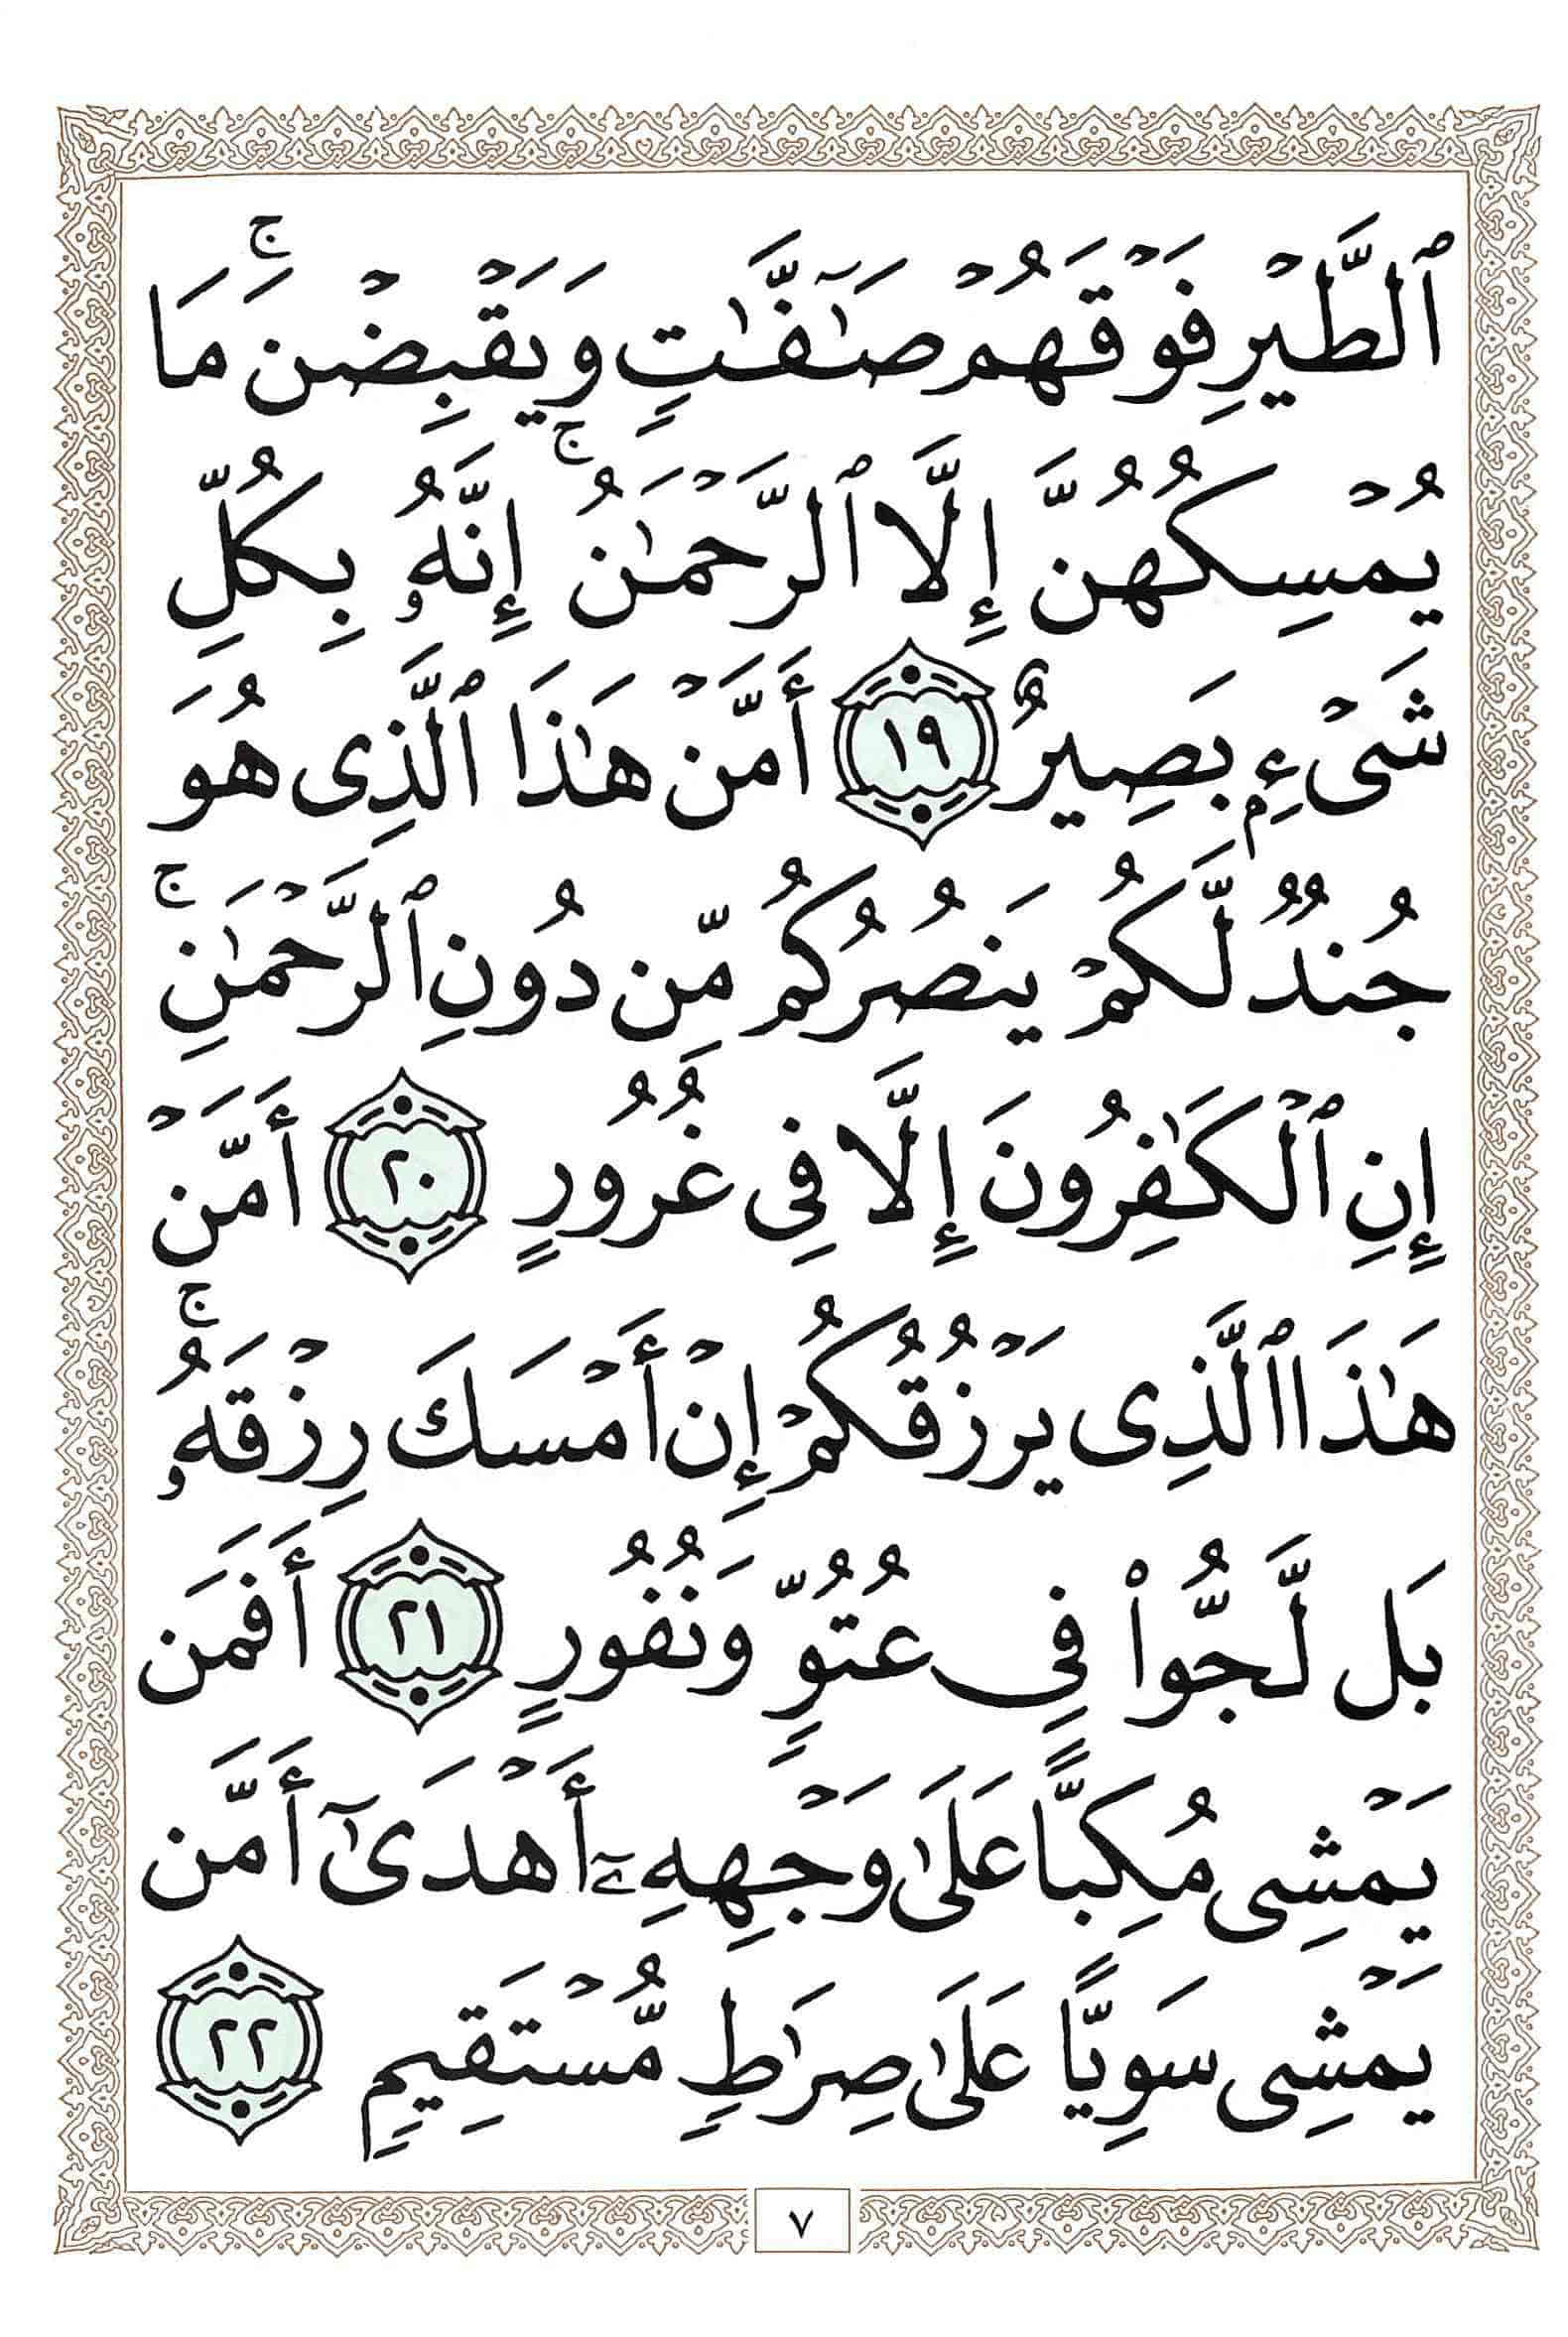 ٱلطَّيْرِ فَوْقَهُمْ صَٰٓفَّٰتٍ وَيَقْبِضْنَ ۚ مَا
يُمْسِكُهُنَّ إِلَّا ٱلرَّحْمَٰنُ ۚ إِنَّهُۥ بِكُلِّ
شَىْءٍۭ بَصِيرٌ ١٩ أَمَّنْ هَٰذَا ٱلَّذِى هُوَ
جُندٌ لَّكُمْ يَنصُرُكُم مِّن دُونِ ٱلرَّحْمَٰنِ ۚ
إِنِ ٱلْكَٰفِرُونَ إِلَّا فِى غُرُورٍ ٢٠ أَمَّنْ
هَٰذَا ٱلَّذِى يَرْزُقُكُمْ إِنْ أَمْسَكَ رِزْقَهُۥ ۚ
بَل لَّجُّوا۟ فِى عُتُوٍّ وَنُفُورٍ ٢١ أَفَمَن
يَمْشِى مُكِبًّا عَلَىٰ وَجْهِهِۦٓ أَهْدَىٰٓ أَمَّن
يَمْشِى سَوِيًّا عَلَىٰ صِرَٰطٍ مُّسْتَقِيمٍ ٢٢
٧